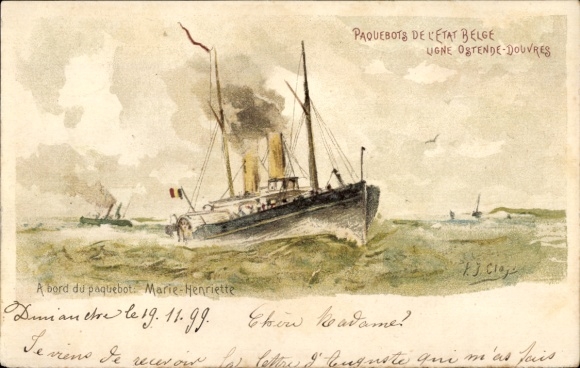 PAQUEBOTS DE L'ETAT BELGE
LIGNE OSTENDE-DOUVRES
P. J. Clays
A bord du paquebot: Marie-Henriette
Dimanche le 19.11.99. Chère Madame!
Je viens de recevoir la lettre d'Auguste qui m'as fais